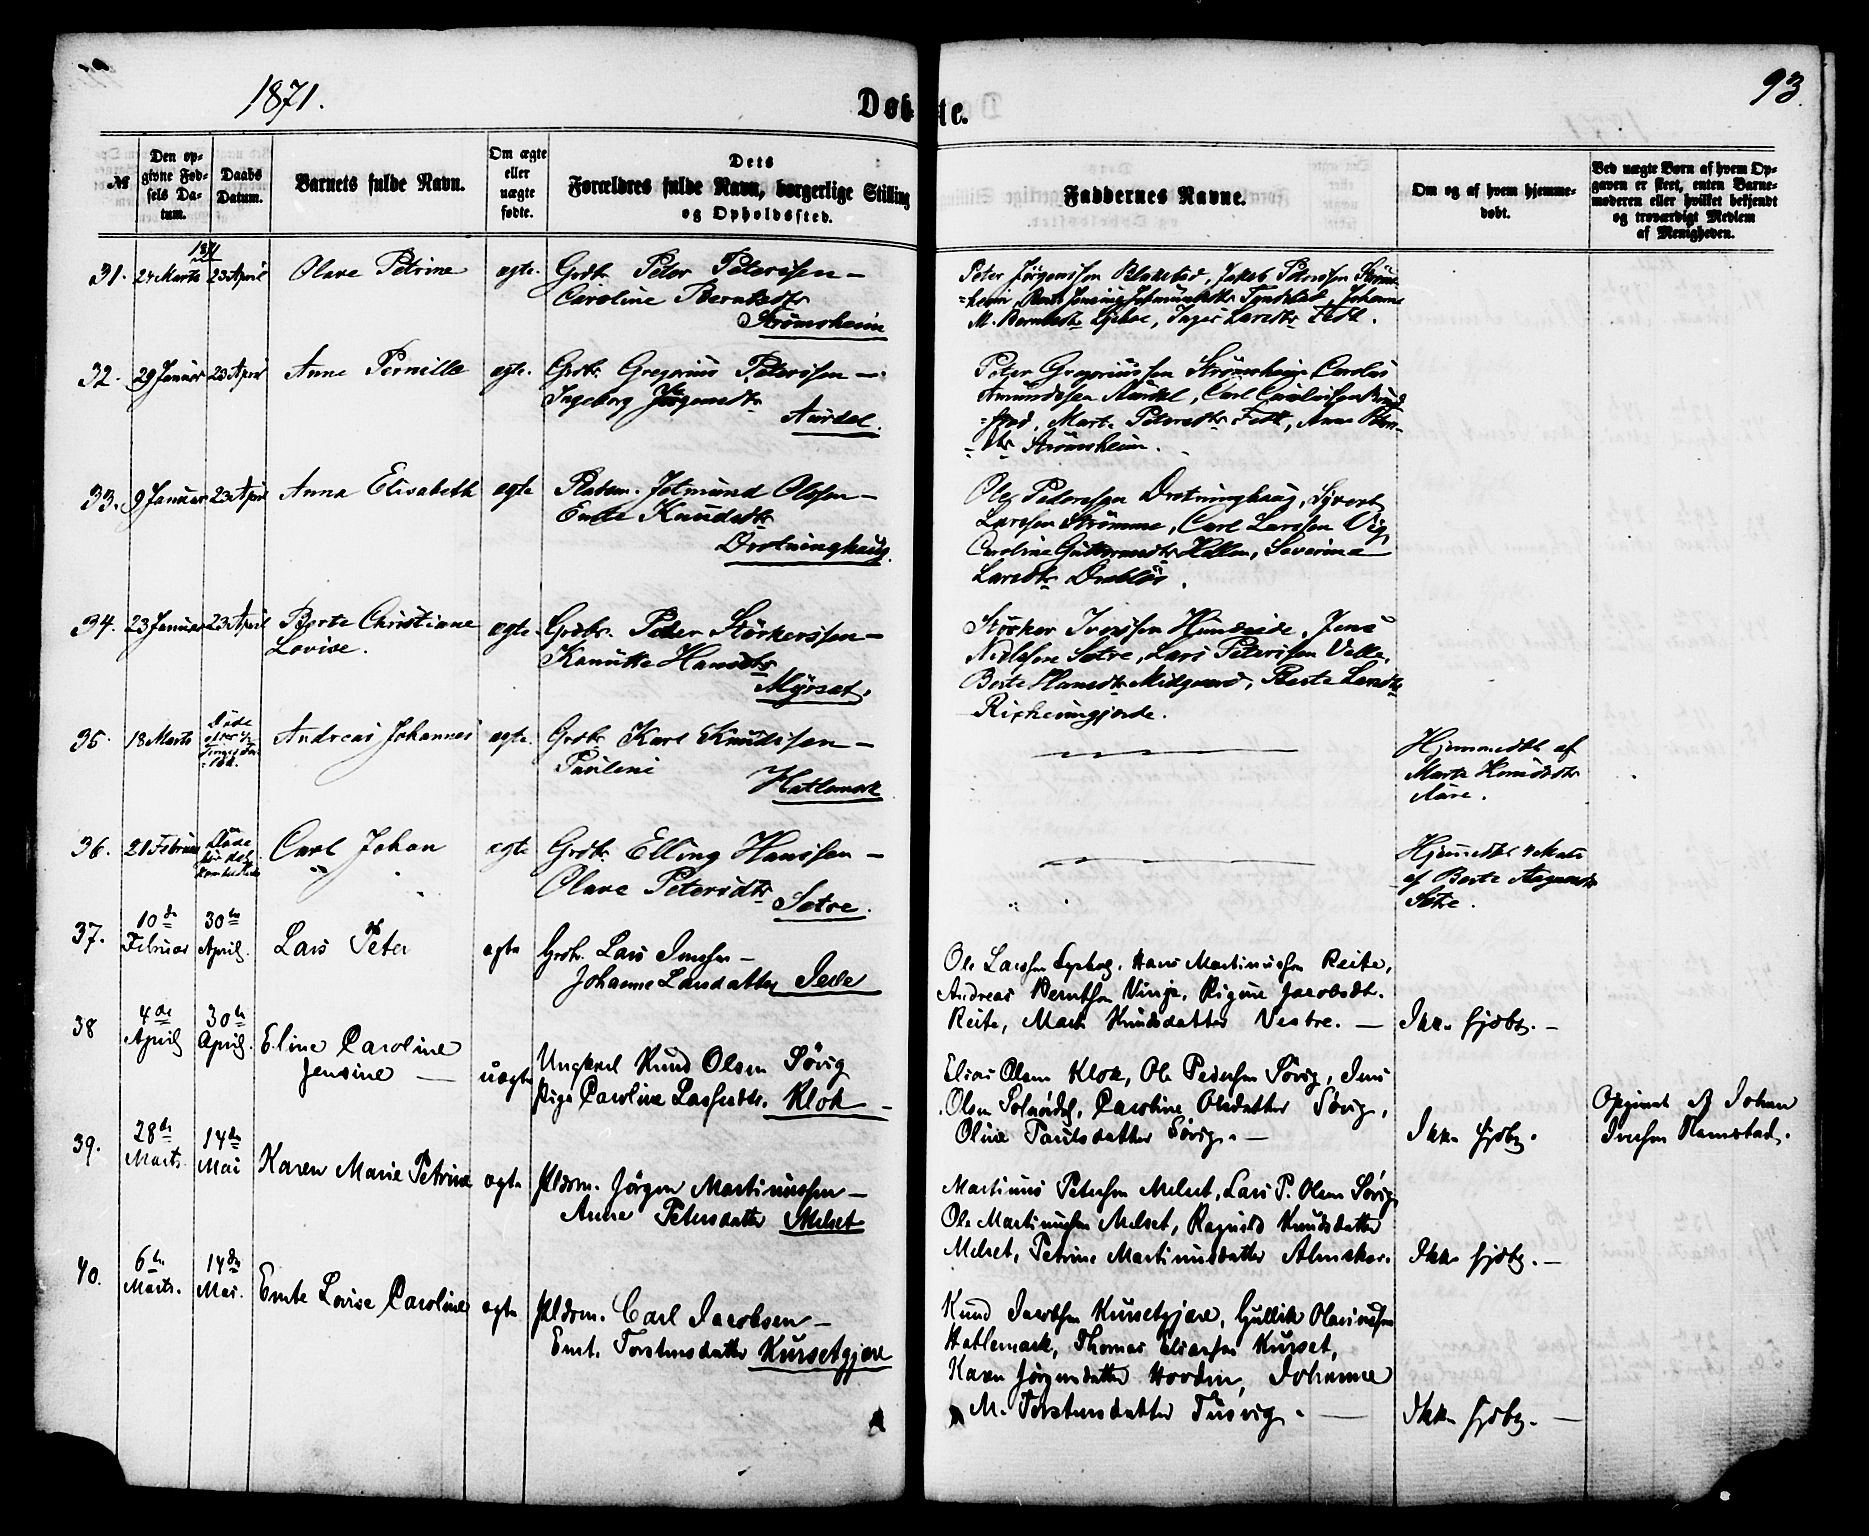 1871.
Døbte.
93.
№
Den op-
givne Fød-
sels Da-
tum.
Daabs
Datum.
Barnets fulde Navn.
Om ægte
eller
uægte
fødte.
Dets
Forældres fulde Navn, borgerlige Stilling
og Opholdssted.
Faddernes Navne.
Om og af hvem hjemme-
døbt.
Ved uægte Børn af hvem Op-
gaven er skeet, enten Barne-
moderen eller hvilket bekjendt
og troværdigt Medlem
af Menigheden.
1871
31. 24 Marts 23 April Olave Petrine ægte. Grdbr. Peter Peterssen –
Caroline Berntsdtr
Strømsheim
Peter Jørgenssen Blakstad, Jakob Peterssen Strøms-
=heim, Jensine Jetmundsdtr Tyndstad, Johanne
M. Berntsdtr, Inger Larsdtr Fedt.
32. 29 Januar 23 April Anne Pernille ægte. Grdbr. Gregorius Peterssen –
Ingeborg Jørgensdtr
Aurdal.
Peter Gregoriussen Strømsheim Carolus
Amundssen Aurdal, Carl
Marte Petersdtr Fedt, Anne
dtr Strømsheim.
33. 9 Januar 23 April Anna Elisabeth ægte Pladsm. Jetmund Olssen –
Emte Knudsdtr
Drotninghaug.
Ole Pederssen Drotninghaug, Syvert
Larssen Strømme, Carl Larssen Vig,
Caroline Guttormsdtr Hallen, Severine
Larsdtr Drabløs.
34. 23 Januar 23 April Berte Christiane ægte. Grdbr. Peter Størkerssen –
Lovise.
Kanutte Hansdtr
Myrset.
Størker Iverssen Hundeide, Jens
Nedlasen Sætre, Lars Peterssen Velle,
Berte Hansdtr Midgaard, Berte Larsdtr
35. 18 Marts Døde Andreas Johannes ægte. Grdbr. Karl Knudssen –
Pauline
Hatlemark
Hjemmedbt. af
Marte Knudsdtr
Aure.
36. 21 Februar Døde Carl Johan ægte Grdbr. Elling Hanssen –
Olave Petersdtr
Sætre.
Hjemmedbt
af Berte
Sætre.
37. 10de Februar 30te April. Lars Peter ægte Grdbr. Lars Jenssen –
Johanne Larsdatter
Ole Larssen, Hans Martinussen Reite,
Andreas Berntsen Vinje, Rigine Jacobsdt.
Reite, Marte Knudsdatter Vestre. – Ikke hjdbt. –
38 4de April 30te April. Eline Caroline
Jensine –
uægte Ungkarl Knud Olsen Søvig
Pige Caroline Lassesdtr. Klok –
Elias Olsen Klok, Ole Pedersen Søvig, Jens
Olsen Solnørdal, Caroline Olsdatter Søvig,
Oline Paulsdatter Søvig. –
Ikke hjdbt.
Opgivet af Johan
Iversen Ramstad.
39. 28de Marts. 14de Mai Karen Marie Petrine ægte Pldsm. Jørgen Martinussen –
Anne Petersdatter Melset
Martinus Petersen Melset, Lars P. Olsen Søvig,
Ole Martinussen Melset, Ragnild Knudsdatter
Melset, Petrine Martinusdatter Almskar. Ikke hjdbt. –
40. 6te Marts. 14de Mai. Emte Lovise Caroline ægte Pldsm. Carl Jacobsen –
Emt. Torstensdatter Kursetgjære
Knud Jacobsen Kursetgjære, Gullik Olaussen
Hatlemark, Thomas Eliassen Kurset,
Karen Jørgensdatter Hovden, Johanne
M. Torstensdatter Tusvig. – Ikke hjdbt. –